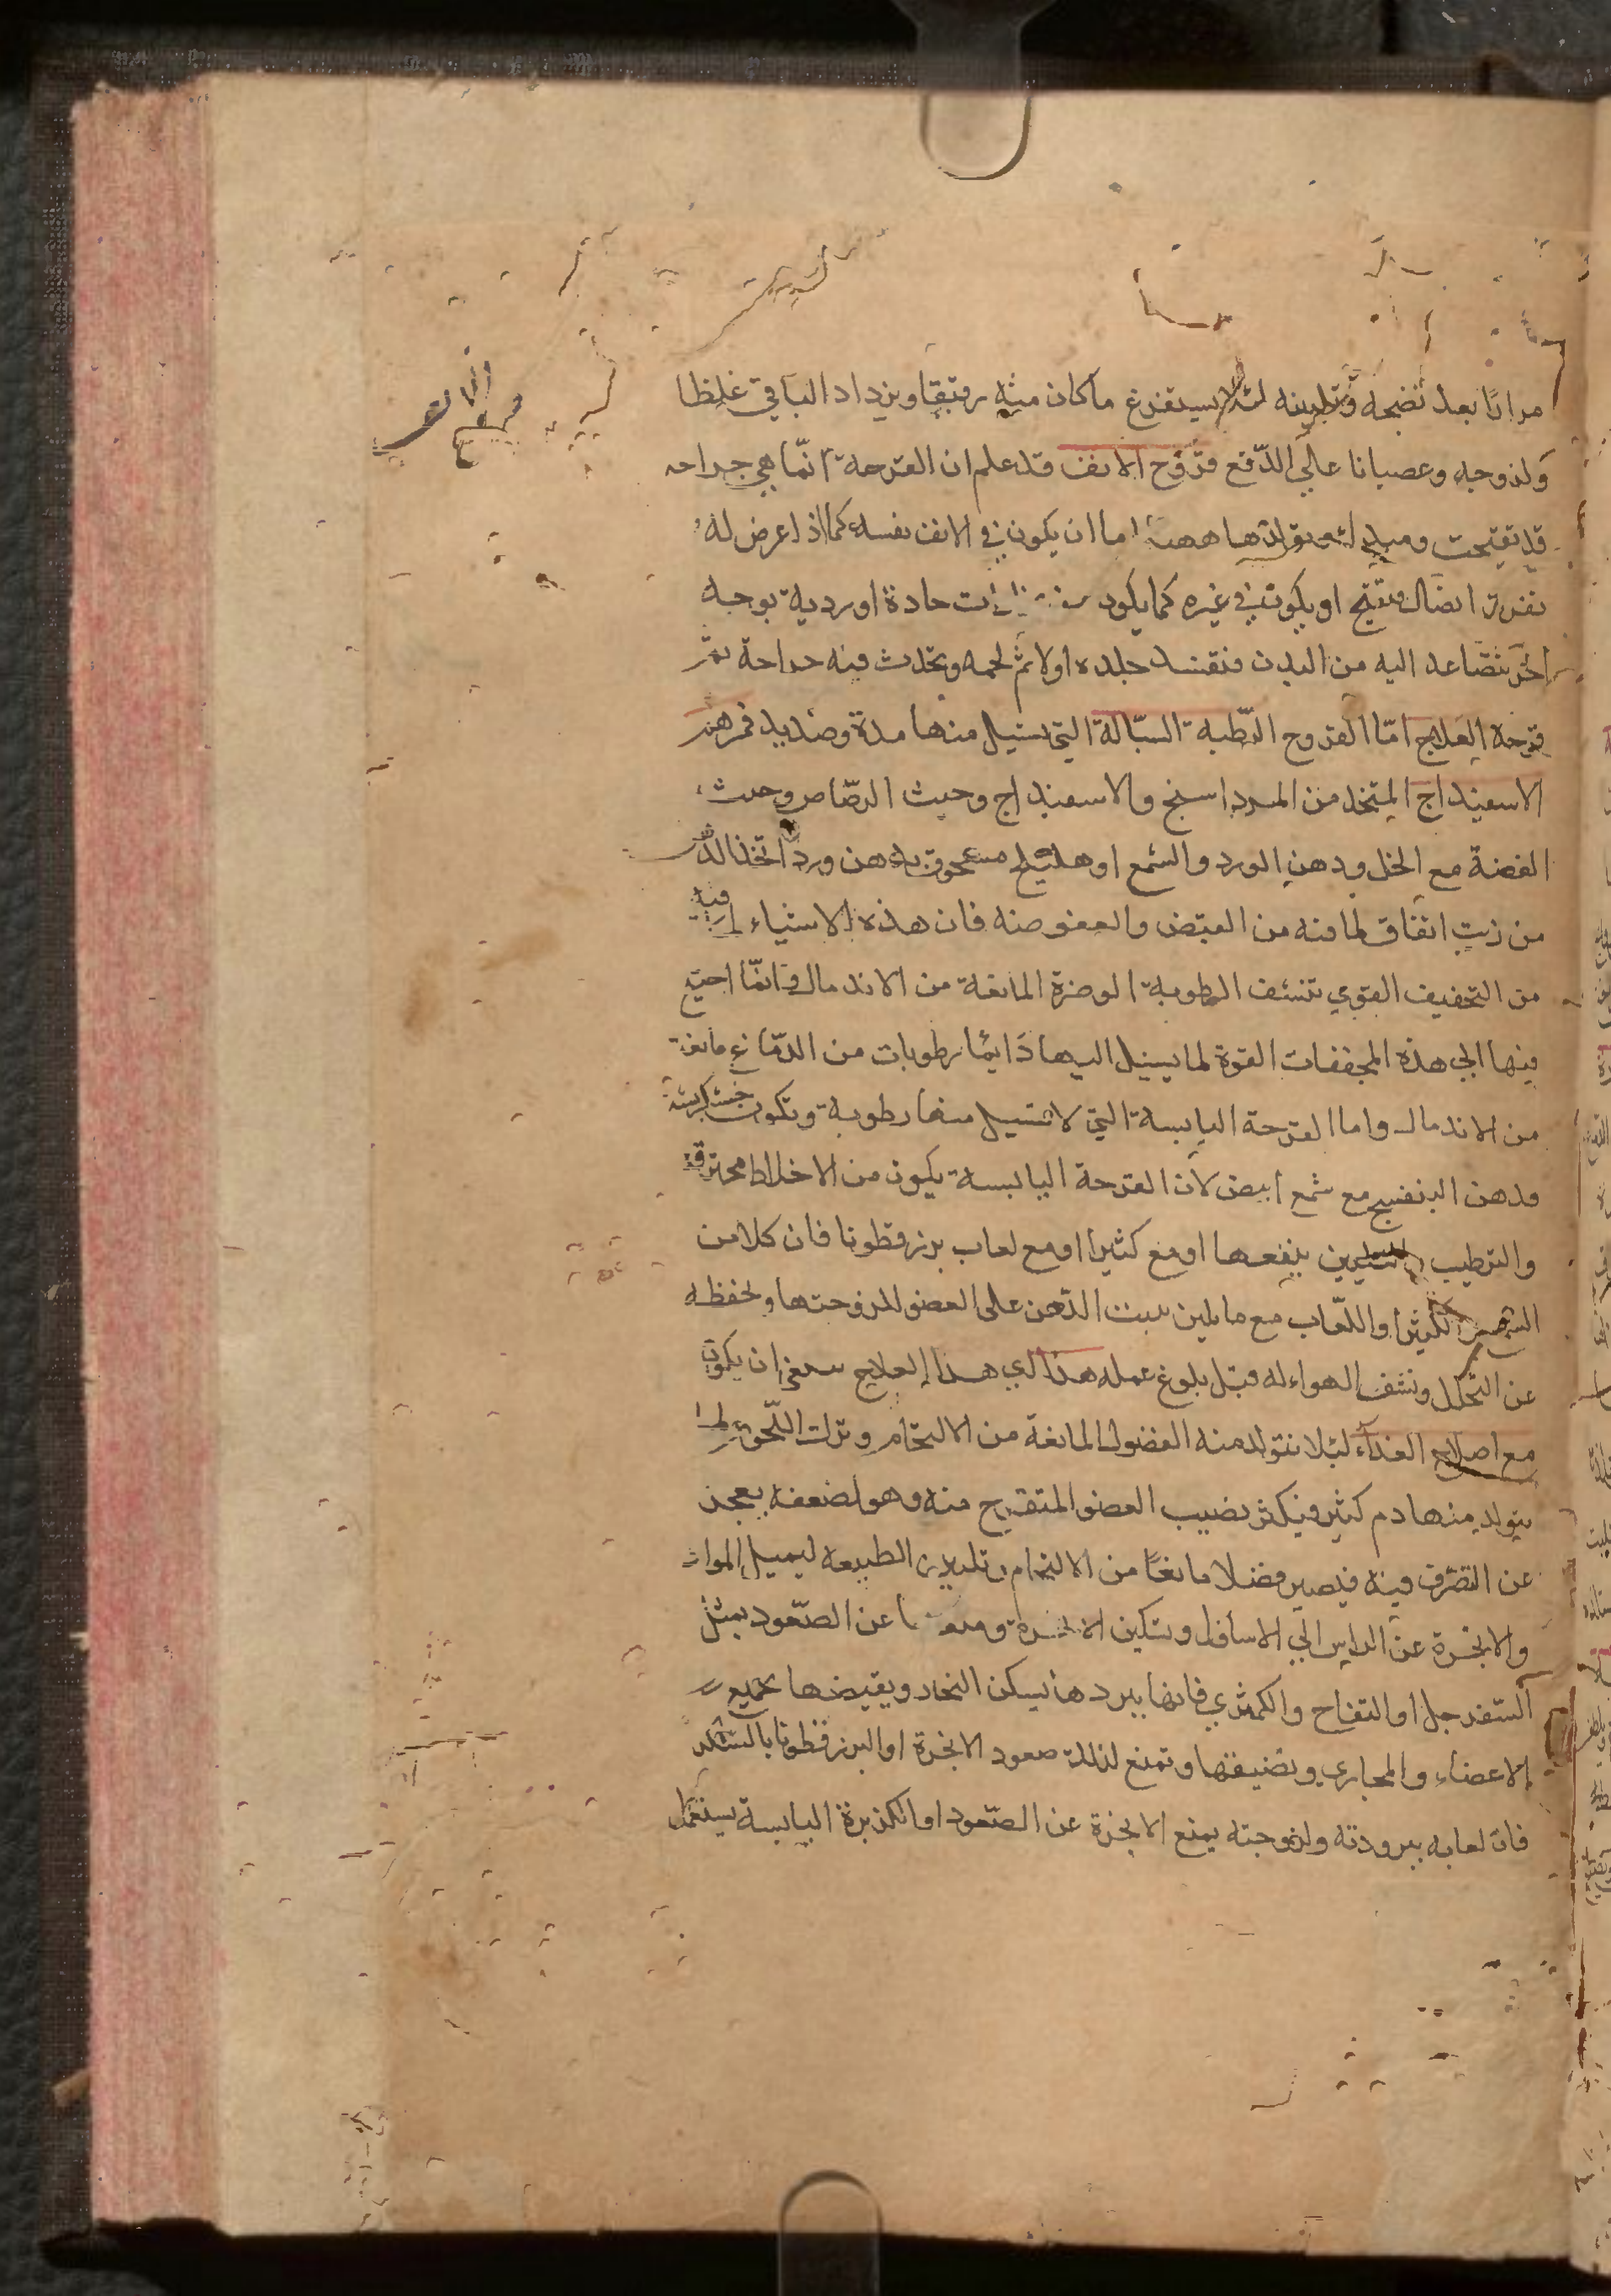 قروح الانف
مرارًا بعد نضجه وتليينه لئلا يستفرغ ما كان منه رقيقا ويزداد الباقي غلظا
ولزوجة وعصيانا على الدفع قروح الانف قد علم ان القرحة انما هي جراحه
قد تقيحت ومبدا تولدها ههنا اما ان يكون في الانف نفسه كما اذا عرض له
تفرق اتصال وتقيح او يكون في غيره كما يكون من حادة او ردية بوجه
اخر تتصاعد اليه من البدن فتفسد جلده اولا ثم لحمه ويحدث فيه جراحة ثم
قرحة العلاج اما القروح الرطبة السيالة التي يسيل منها مدة وصديد فمرهم
الاسفيداج المتخذ من المرداسنج والاسفيداج وخبث الرصاص وخبث
الفضة مع الخل ودهن الورد والشمع او هليلج مسحوق بدهن ورد اتخذ
من زيت انفاق لما فيه من القبض والعفوصة فان هذه الاشياء فيها
من التجفيف القوي تنشف الرطوبة الوضرة المانعة من الاندمال وانما احتيج
فيها الى هذه المجففات القوة لما يسيل اليها دايما رطوبات من الدماغ مانعة
من الاندمال واما القرحة اليابسة التي لا تسيل منها رطوبة وتكون خشكريشة
فدهن البنفسج مع شمع ابيض لان القرحة اليابسة يكون من الاخلاط محترقة
والترطيب والتليين ينفعها او مع كثيرا او مع لعاب بزر قطونا فان كلا من
الشمع والكثيرا واللعاب مع ما يلين يثبت الدهن على العضو للزوجتها ويحفظه
عن التحلل ونشف الهواء له قبل بلوغ عمله هذا اي هذا العلاج ينبغي ان يكون
مع اصلاح الغذاء لئلا يتولد منه الفضول المانعة من الالتحام وترك اللحوم لما
يتولد منها دم كثير فيكثر نصيب العضو المتقرح منه وهو لضعفه يعجز
عن التصرف فيه فيصير فضلا مانعًا من الالتحام وتليين الطبيعة ليميل المواد
والابخرة عن الراس الى الاسافل وتسكين الابخرة ومنعها عن الصعود بمثل
السفرجل او التفاح والكمثري فانها ببردها يسكن البخار ويقبضها بجميع
الاعضاء والمجاري وتضييقها وتمنع لذلك صعود الابخرة او البزر قطونا بالسكر
فان لعابه ببرودته ولزوجته يمنع الابخرة عن الصعود او الكزبرة اليابسة يستعمل